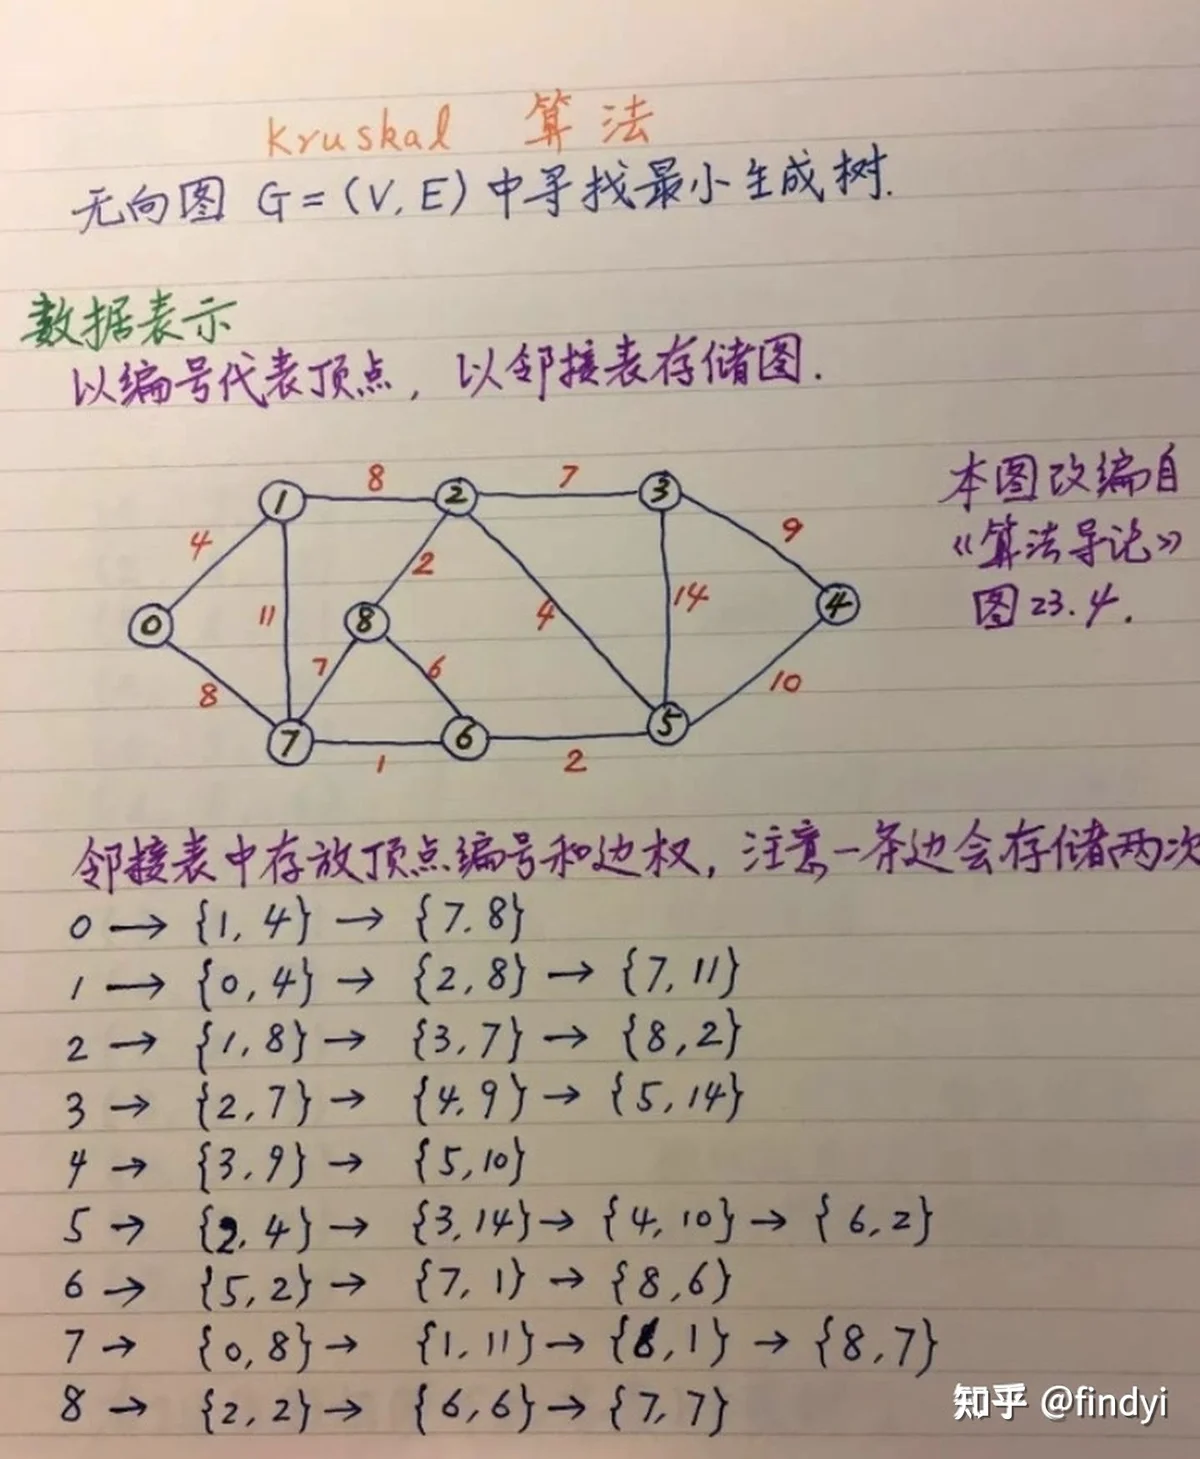 Kruskal 算法
无向图 G=(V,E)中寻找最小生成树.
数据表示
以编号代表顶点，以邻接表存储图.
本图改编自
《算法导论》
图23.4.
8 7
1 2 3
4 2 9
0 11 8 4 14 4
8 7 6 10
7 6 5
1 2
邻接表中存放顶点编号和边权，注意一条边会存储两次
0 → {1, 4} → {7. 8}
1 → {0, 4} → {2, 8} → {7, 11}
2 → {1, 8} → {3, 7} → {8, 2}
3 → {2, 7} → {4, 9} → {5, 14}
4 → {3, 9} → {5, 10}
5 → {2, 4} → {3, 14} → {4, 10} → {6, 2}
6 → {5, 2} → {7, 1} → {8, 6}
7 → {0, 8} → {1, 11} → {6, 1} → {8, 7}
8 → {2, 2} → {6, 6} → {7, 7}
知乎 @findyi